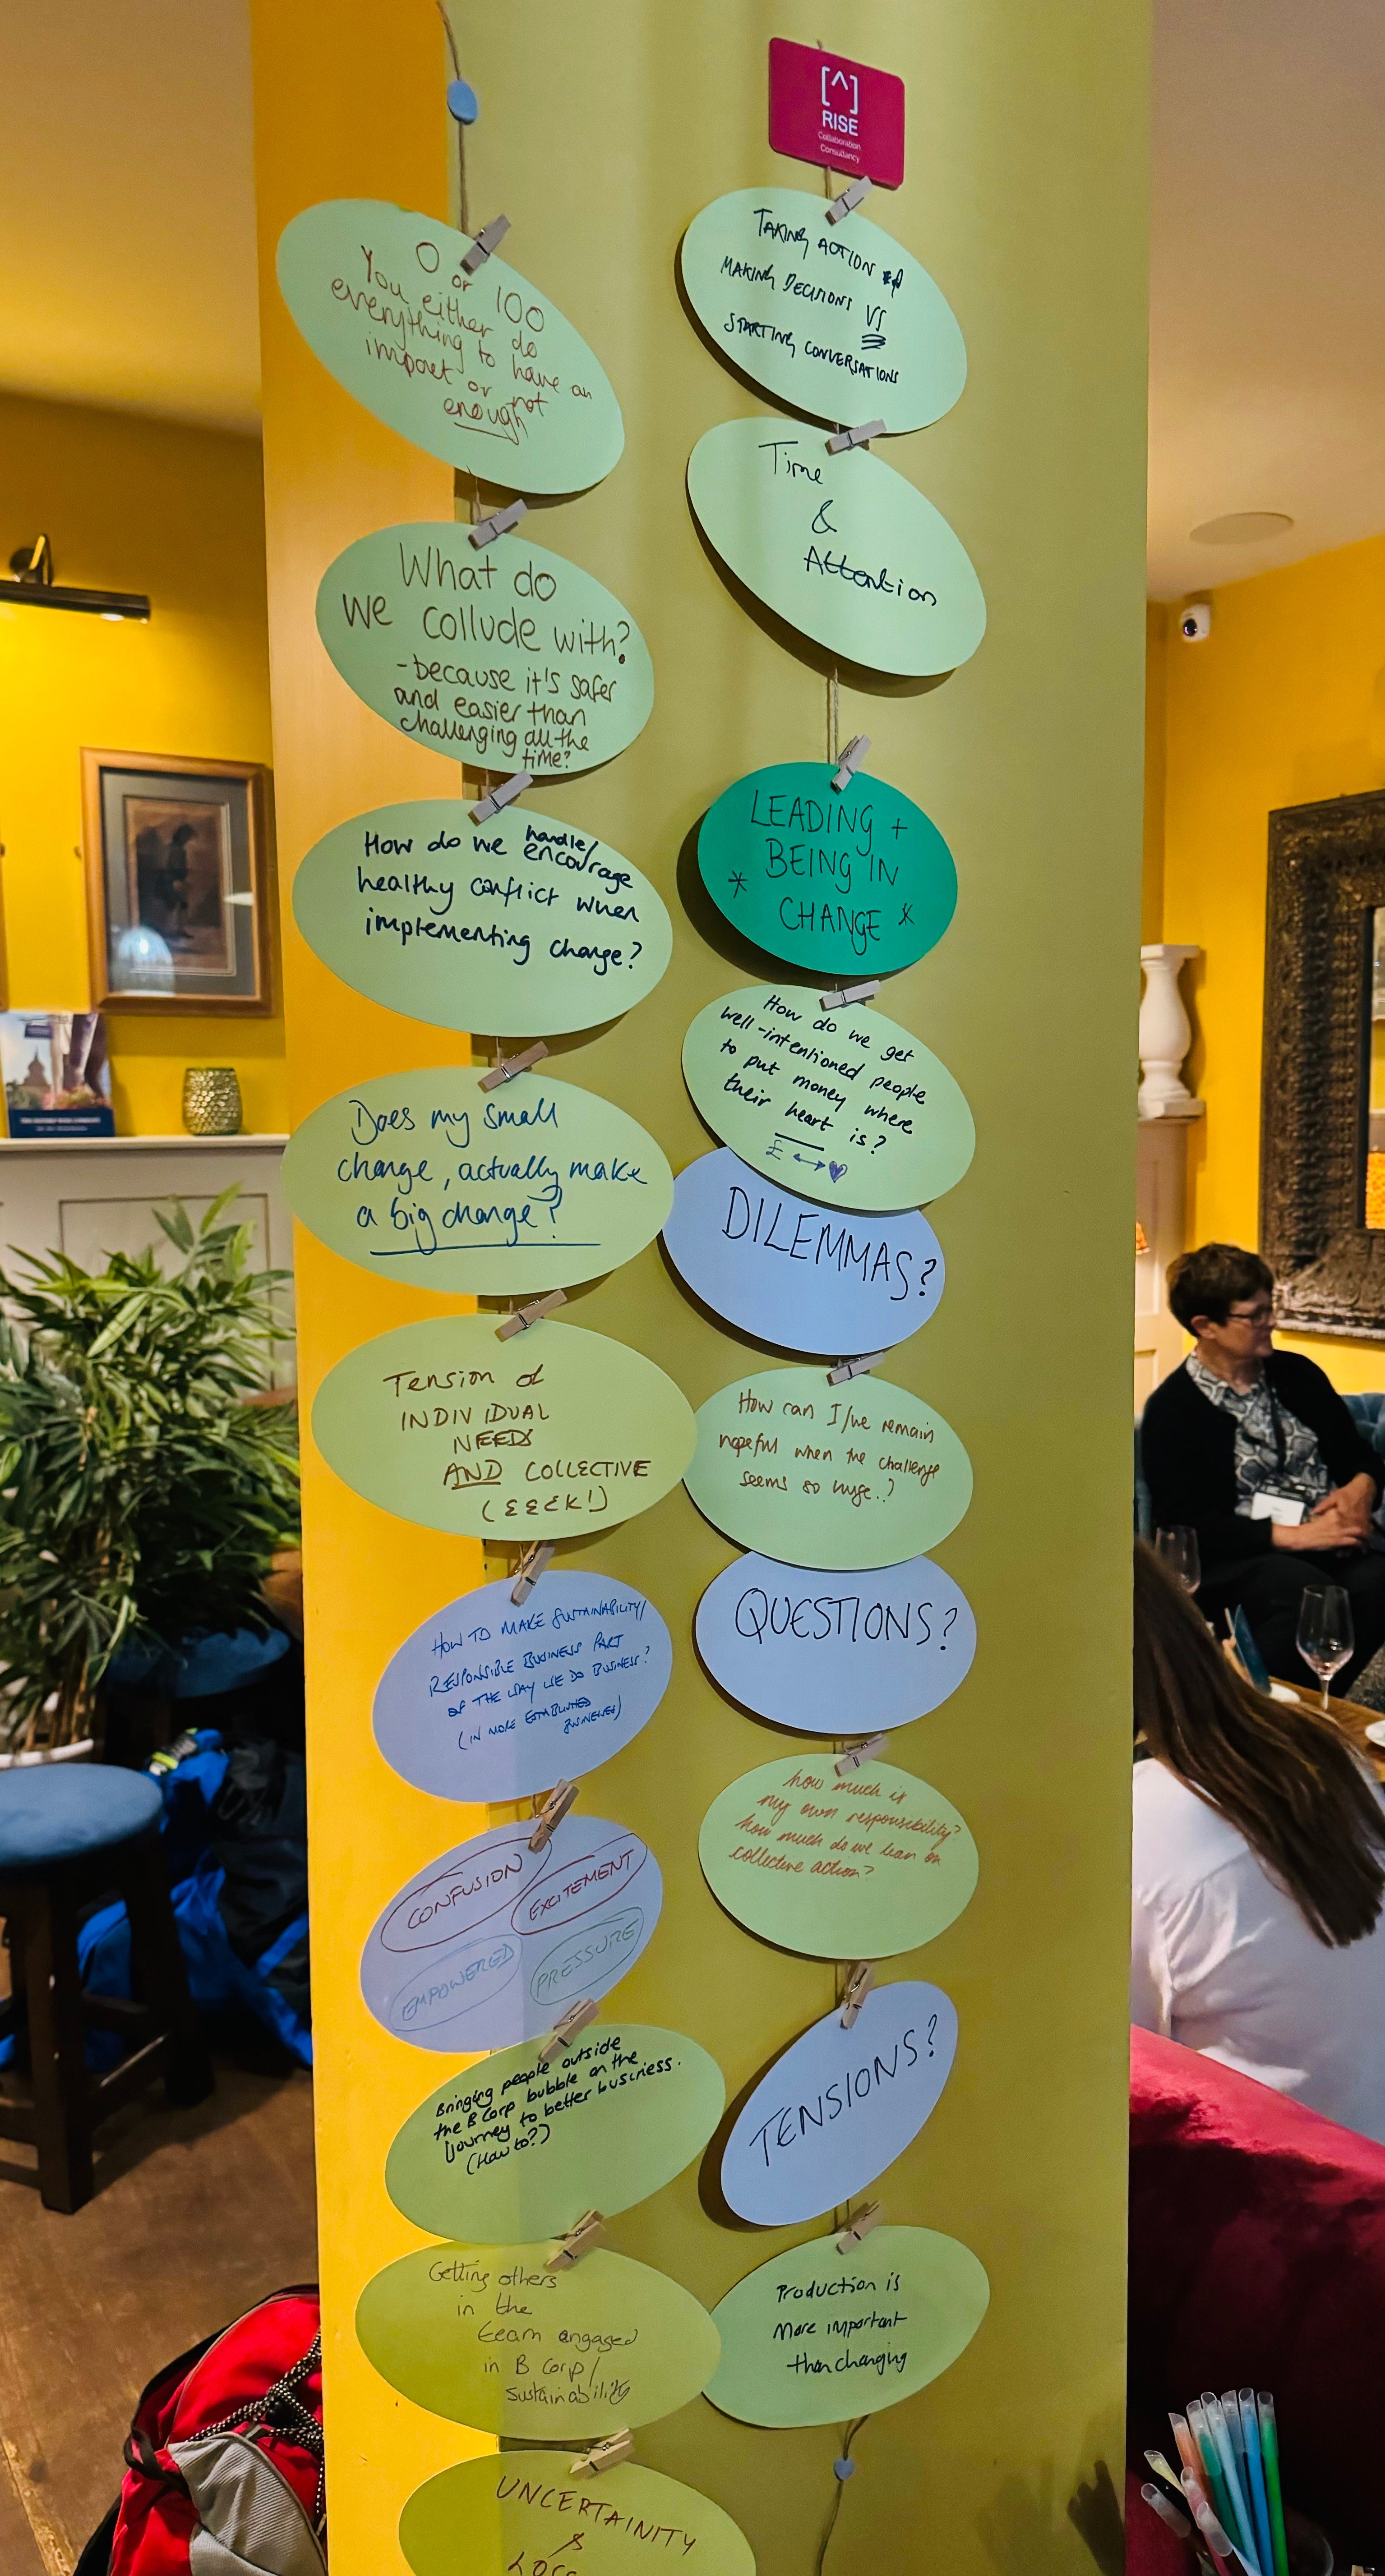 0 or 100
You either do
everything to have an
impact or not
enough
What do
we collude with?
-because it's safer
and easier than
challenging all the
time?
How do we handle/
encourage
healthy conflict when
implementing change?
Does my small
change, actually make
a big change?
Tension of
INDIVIDUAL
NEEDS
AND COLLECTIVE
(EEEK!)
HOW TO MAKE SUSTAINABILITY/
RESPONSIBLE BUSINESS PART
OF THE WAY WE DO BUSINESS?
(IN MORE ESTABLISHED
BUSINESSES)
CONFUSION
EXCITEMENT
EMPOWERED
PRESSURE
Bringing people outside
the B Corp bubble on the
journey to better business.
(How to?)
Getting others
in the
team engaged
in B Corp/
sustainability
UNCERTAINITY
&
LOSS
[^]
RISE
Collaboration
Consultancy
TAKING ACTION &
MAKING DECISIONS VS
STARTING CONVERSATIONS
Time
&
Attention
LEADING +
BEING IN
* CHANGE *
How do we get
well-intentioned people
to put money where
their heart is?
£ ↔ ♥
DILEMMAS?
How can I/we remain
hopeful when the challenge
seems so huge..?
QUESTIONS?
how much is
my own responsibility?
how much do we lean on
collective action?
TENSIONS?
Production is
More important
than changing